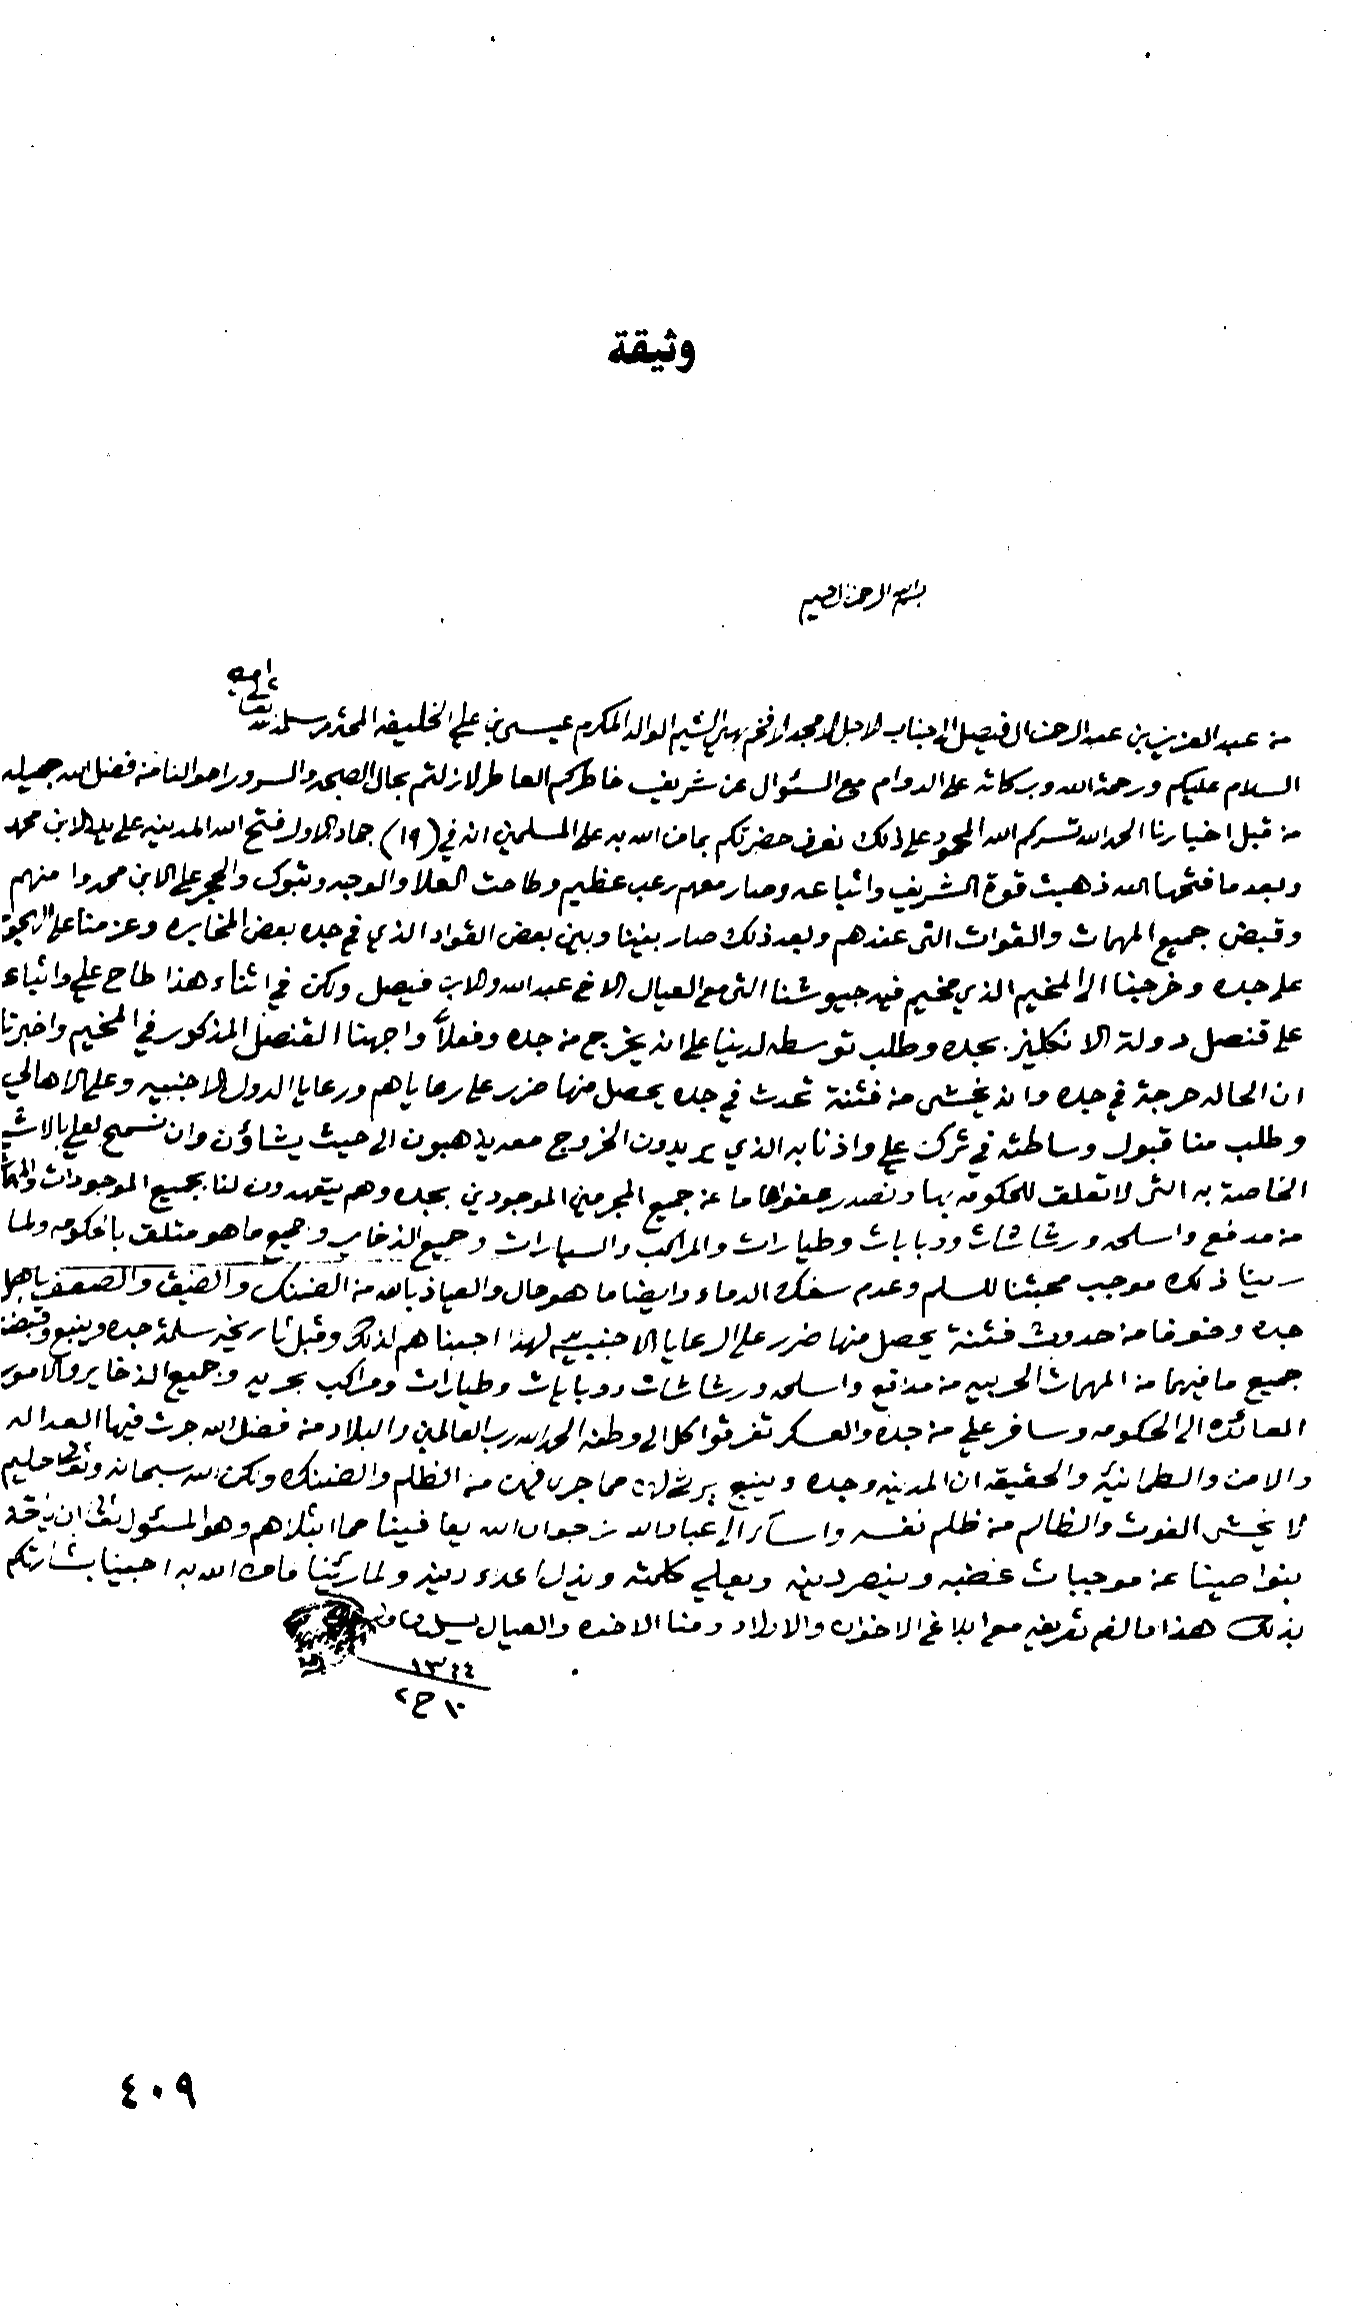 وثيقة
بسم الله الرحمن الرحيم
من عبد العزيز بن عبد الرحمن ال فيصل الى جناب الاجل الامجد الافخم بهي الشيم الوالد المكرم عيسى بن علي الخليفه المحترم سلمه الله تعالى
السلام عليكم ورحمة الله وبركاته على الدوام مع السئوال عن شريف خاطركم العاطر لازلتم بحال الصحه والسرور احوالنا من فضل الله جميله
من قبل اخبارنا الحمد لله تسركم الله المحمود على ذلك نعرف حضرتكم بما من الله به على المسلمين انه في (١٩) جماد الاول فتح الله المدينه على يد الابن محمد
وبعد ما فتحها الله ذهبت قوة الشريف واتباعه وصار معهم رعب عظيم وطاحت العلا والوجه وتبوك والحجر على الابن محمد وا منهم
وقبض جميع المهمات والقوات التي عندهم وبعد ذلك صار بيننا وبين بعض القواد الذي في جده بعض المخابره وعزمنا على الهجوم
على جده وخرجنا الى المخيم الذي مخيم فيه جيوشنا التي مع العيال الاخ عبد الله والابن فيصل ولكن في اثناء هذا طاح علي واتباعه
على قنصل دولة الانكليز بجده وطلب توسطه لدينا على ان يخرج من جده وفعلاً واجهنا القنصل المذكور في المخيم واخبرنا
ان الحاله حرجة في جده وانه يخشى من فتنة تحدث في جده يحصل منها ضرر على رعاياهم ورعايا الدول الاجنبيه وعلى الاهالي
وطلب منا قبول وساطته في ترك علي واذنابه الذي يريدون الخروج معه يذهبون الى حيث يشاؤن وان نسمح لعلي بالاشياء
الخاصة به التي لا تعلق للحكومه بها ونصدر عفوا عاما عن جميع المجرمين الموجودين بجده وهم يتعهدون لنا بجميع الموجودات
من مدفع واسلحه ورشاشات ودبابات وطيارات والمراكب والسيارات وجميع الذخاير وجميع ما هو متلق بالحكومه ولما
رينا ذلك موجب محبتنا للسلم وعدم سفك الدماء وايضا ما هو حال والعياذ بالله من الضنك والضيق والضعف باهل
جده وخوفا من حدوث فتنة يحصل منها ضرر على الرعايا الاجنبيه لهذا اجبناهم لذلك وقبل تاريخه سلمة جده وينبع وقبضنا
جميع ما فيهما من المهمات الحربيه من مدافع واسلحه ورشاشات ودبابات وطيارات ومراكب بحريه وجميع الذخاير والامور
العائده الى الحكومه وسافر علي من جده والعسكر تفرقوا كل الى وطنه الحمد لله رب العالمين والبلاد من فضل الله جرت فيها العداله
والامن والطمانينة والحقيقه ان المدينه وجده وينبع يرثى لهن مما جرى فيهن من الظلم والضنك ولكن الله سبحانه وتعالى حليم
لا يخشى الفوت والظالم من ظلم نفسه واساء الى عباد الله نرجو ان الله يعافينا مما ابتلاهم وهو المسئول تعالى ان ياخذ
بنواصينا عن موجبات غضبه وينصر دينه ويعلي كلمته ويذل اعداء دينه ولما رئينا ما من الله به احبينا بشارتكم
بذلك هذا ما لزم تعريفه مع ابلاغ الاخوان والاولاد ومنا الاخوه والعيال يسلمون
١٣٤٤
١٠ ج ٢
٤٠٩